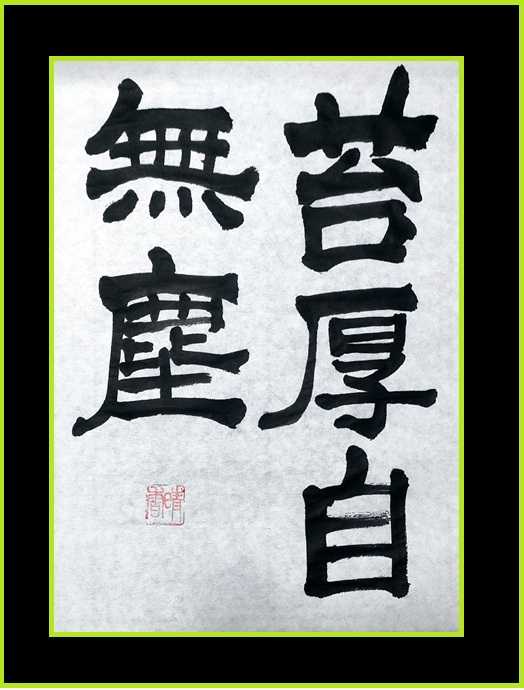 苔厚自
無塵